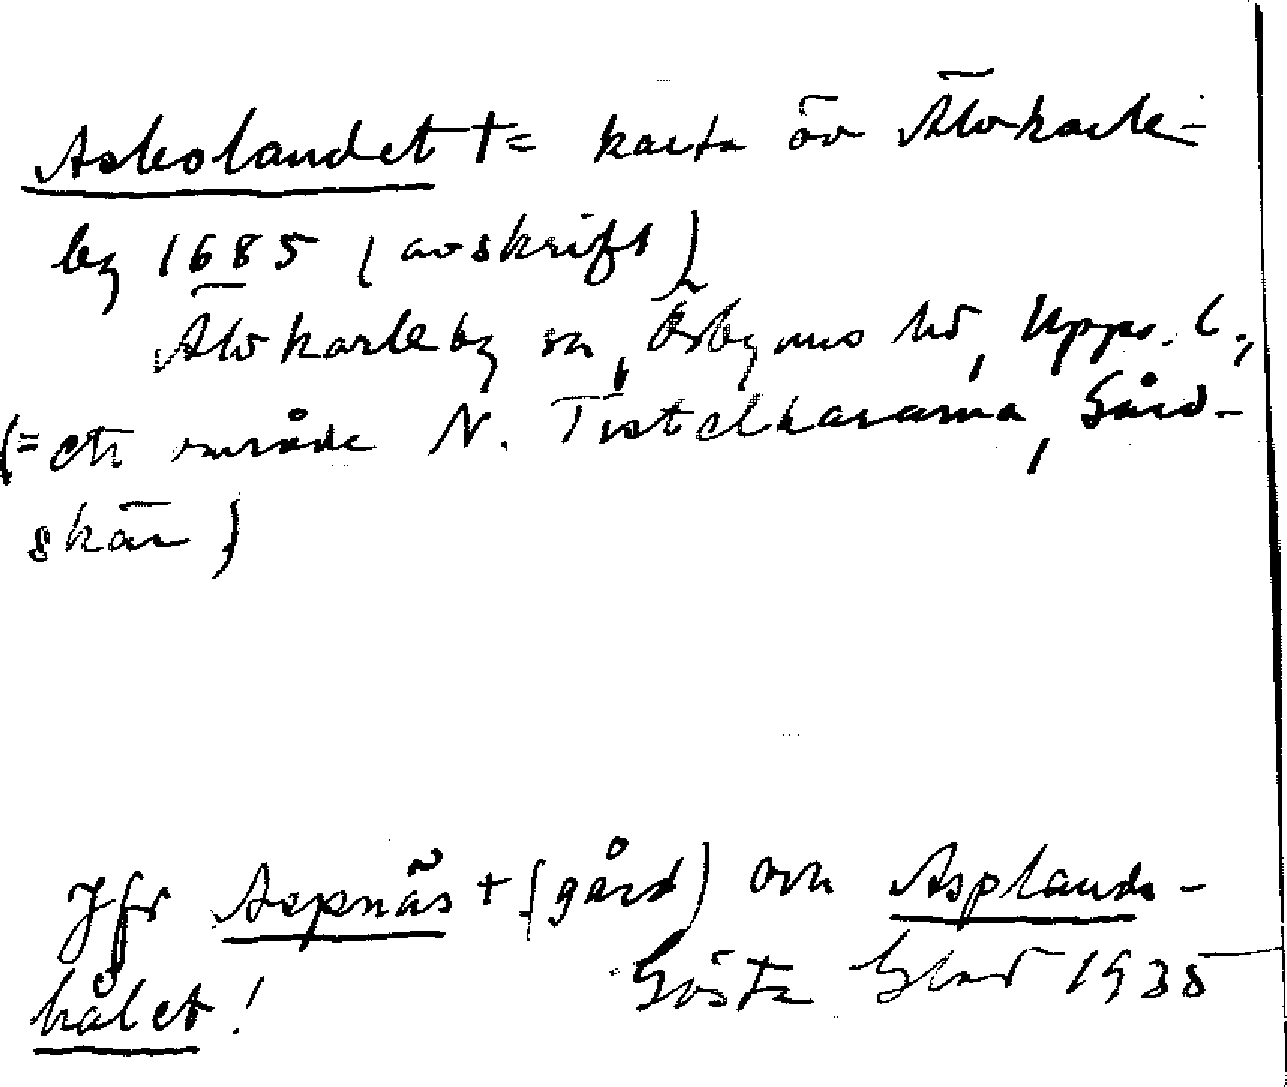 Askolandet += karta öv Älvkarle-
by 1685 (avskrift)
Älvkarleby sn, Örbyhus hd, Upps. l.,
(= ett område N. Tistelhararna, Gård-
skär)
Jfr Aspnäs + (gård) och Asplands-
hålet!
Gösta 1935